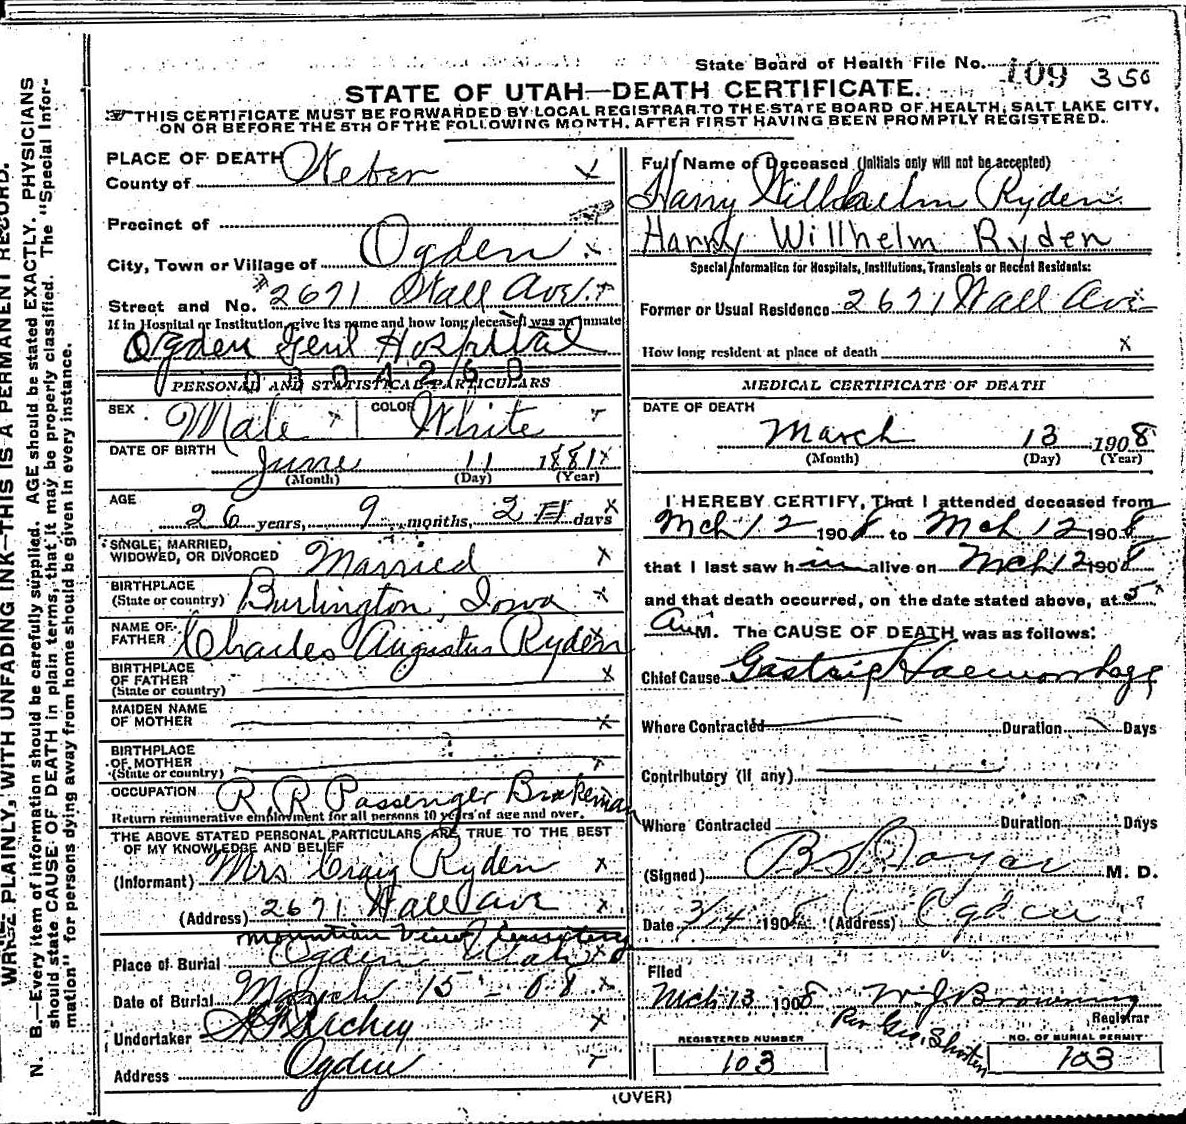 WRITE PLAINLY, WITH UNFADING INK—THIS IS A PERMANENT RECORD.
N. B.—Every item of information should be carefully supplied. AGE should be stated EXACTLY. PHYSICIANS
should state CAUSE OF DEATH in plain terms, that it may be properly classified. The "Special Infor-
mation" for persons dying away from home should be given in every instance.
State Board of Health File No. 109 350
STATE OF UTAH—DEATH CERTIFICATE.
THIS CERTIFICATE MUST BE FORWARDED BY LOCAL REGISTRAR TO THE STATE BOARD OF HEALTH, SALT LAKE CITY,
ON OR BEFORE THE 5TH OF THE FOLLOWING MONTH, AFTER FIRST HAVING BEEN PROMPTLY REGISTERED.
PLACE OF DEATH
County of Weber x
Precinct of
City, Town or Village of Ogden x
Street and No. 2671 Wall Ave. x
If in Hospital or Institution, give its name and how long deceased was an inmate
Ogden Genl Hospital
0304260
PERSONAL AND STATISTICAL PARTICULARS
SEX Male x COLOR White
DATE OF BIRTH June 11 1881 x
(Month) (Day) (Year)
AGE
26 years, 9 months, 2 days x
SINGLE, MARRIED,
WIDOWED, OR DIVORCED Married x
BIRTHPLACE
(State or country) Burlington, Iowa x
NAME OF
FATHER Charles Augustus Ryden
BIRTHPLACE
OF FATHER
(State or country) x
MAIDEN NAME
OF MOTHER x
BIRTHPLACE
OF MOTHER
(State or country)
OCCUPATION R R Passenger Brakeman
Return remunerative employment for all persons 10 years of age and over.
THE ABOVE STATED PERSONAL PARTICULARS ARE TRUE TO THE BEST
OF MY KNOWLEDGE AND BELIEF
(Informant) Mrs Craig Ryden x
(Address) 2671 Wall Ave x
Mountain View Cemetery
Place of Burial Ogden Utah x
Date of Burial March 15 - 08 x
Undertaker Richey x
Address Ogden
Full Name of Deceased (Initials only will not be accepted)
Harry Willhelm Ryden
Harry Willhelm Ryden
Special Information for Hospitals, Institutions, Transients or Recent Residents:
Former or Usual Residence 2671 Wall Ave
How long resident at place of death x
MEDICAL CERTIFICATE OF DEATH
DATE OF DEATH
March 13 1908
(Month) (Day) (Year)
I HEREBY CERTIFY, That I attended deceased from
Mch 12 1908 to Mch 12 1908
that I last saw him alive on Mch 12 1908
and that death occurred, on the date stated above, at 5 x
A M. The CAUSE OF DEATH was as follows:
Chief Cause Gastric Haemorrhage
Where Contracted Duration Days
Contributory (if any)
Where Contracted Duration Days
(Signed) M. D.
Date 3/14 1908 (Address) Ogden
Filed
Mch 13 1908 W J Browning
Registrar
Per Geo. Shorten
REGISTERED NUMBER NO. OF BURIAL PERMIT
103 103
(OVER)